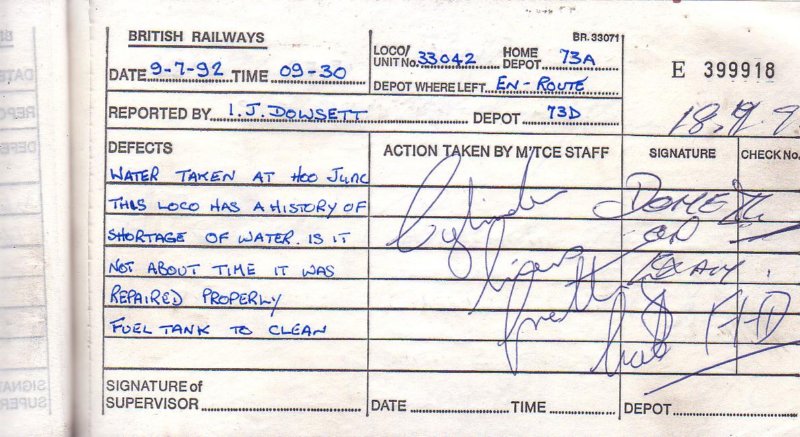 BRITISH RAILWAYS
BR. 33071
DATE 9-7-92 TIME 09-30
LOCO/ UNIT No. 33042 HOME DEPOT. 73A
DEPOT WHERE LEFT EN-ROUTE
E 399918
REPORTED BY I.J. DOWSETT DEPOT 73D
DEFECTS
ACTION TAKEN BY M'TCE STAFF
SIGNATURE
CHECK No.
WATER TAKEN AT HOO JUNC
THIS LOCO HAS A HISTORY OF
SHORTAGE OF WATER. IS IT
NOT ABOUT TIME IT WAS
REPAIRED PROPERLY
FUEL TANK TO CLEAN
Cylinder
liners
DONE
ON
EXAM
SIGNATURE of
SUPERVISOR
DATE
TIME
DEPOT